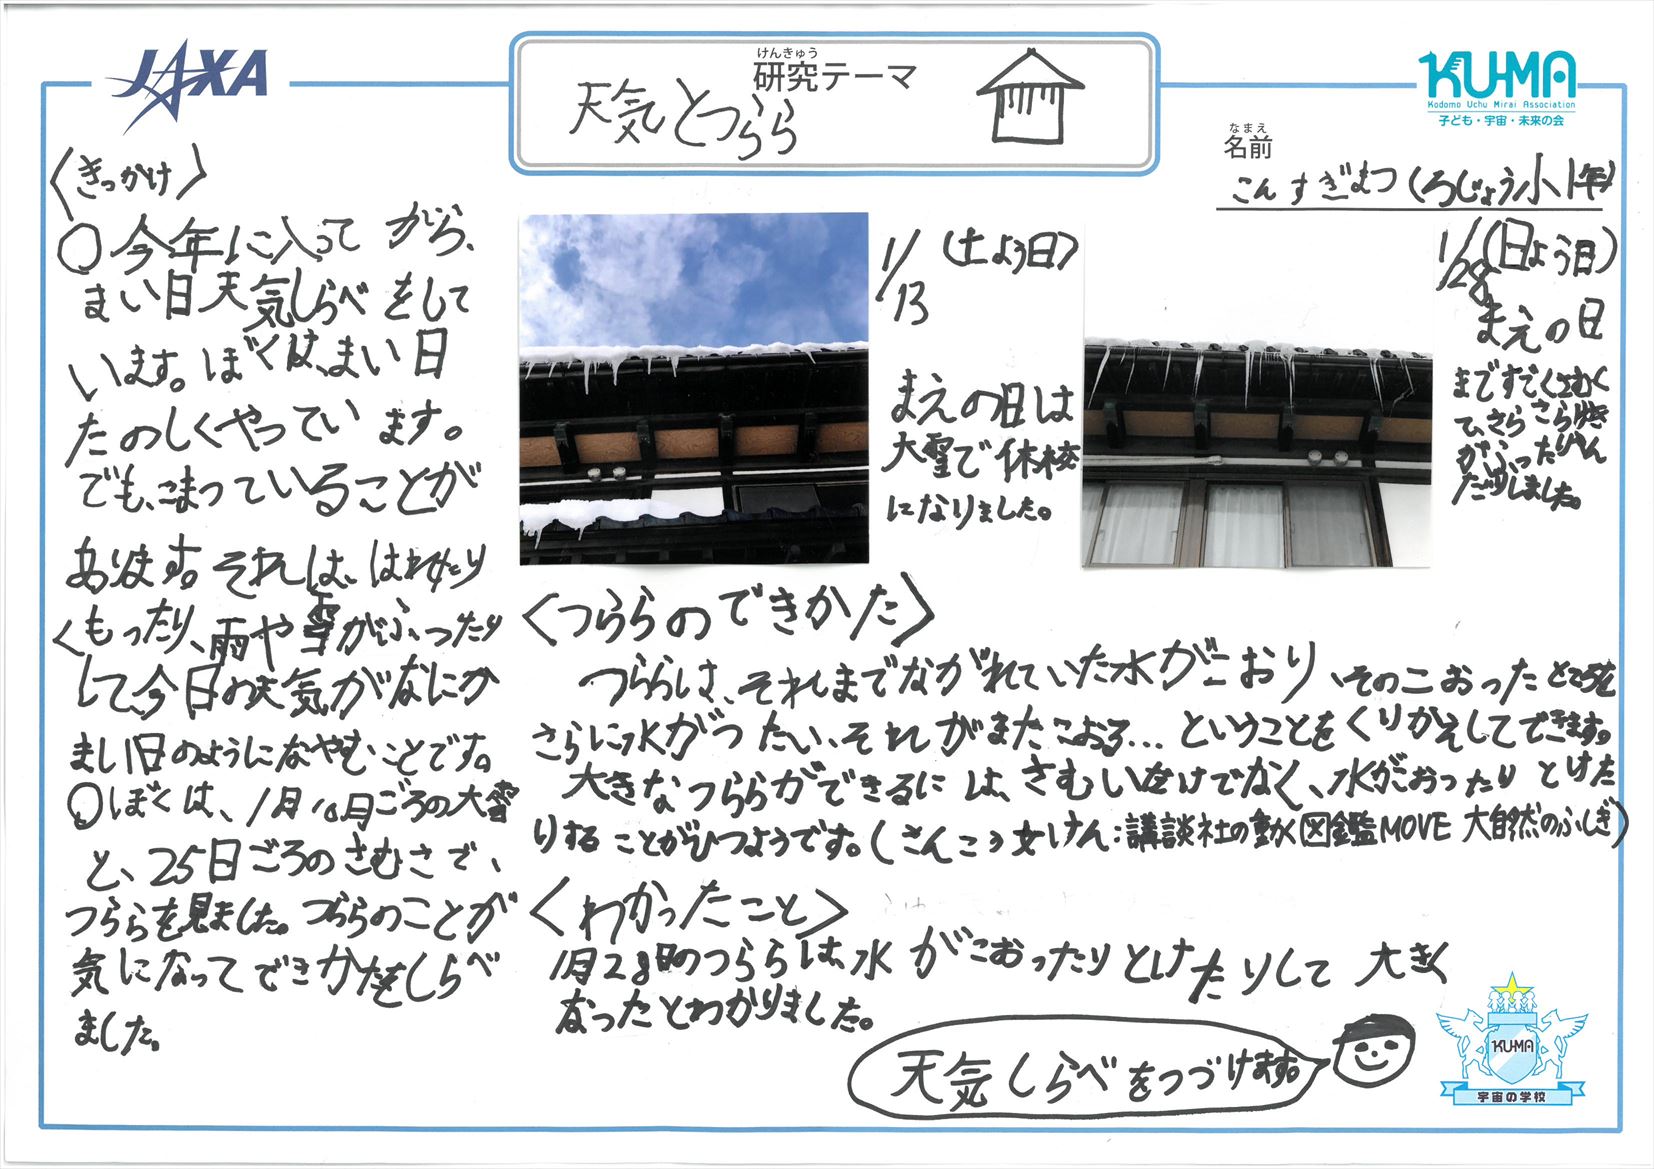 JAXA
けんきゅう
研究テーマ
天気とつらら
KU-MA
Kodomo Uchu Mirai Association
子ども・宇宙・未来の会
なまえ
名前
こん すぎまつ(ろじょう小1年)
<きっかけ>
○今年に入ってから、
まい日天気しらべをして
います。ぼくは、まい日
たのしくやっています。
でも、こまっていることが
あります。それは、はれたり
くもったり、雨や雪がふったり
して、今日の天気がなにか
まい日のようになやむことです。
○ぼくは、1月10日ごろの大雪
と、25日ごろのさむさで、
つららを見ました。つららのことが
気になってできかたをしらべ
ました。
1/13(土よう日)
まえの日は
大雪で休校
になりました。
1/28(日よう日)
まえの日
まですごくさむく
て、さらさらゆき
がふったり
しました。
<つららのできかた>
つららは、それまでながれていた水がこおり、そのこおったところを
さらに水がつたい、それがまたこおる…ということをくりかえしてできます。
大きなつららができるには、さむいだけでなく、水がこおったりとけた
りすることがひつようです。(さんこう文けん:講談社の動く図鑑MOVE 大自然のふしぎ)
<わかったこと>
1月28日のつららは、水がこおったりとけたりして大きく
なったとわかりました。
天気しらべをつづけます。
KU-MA
宇宙の学校